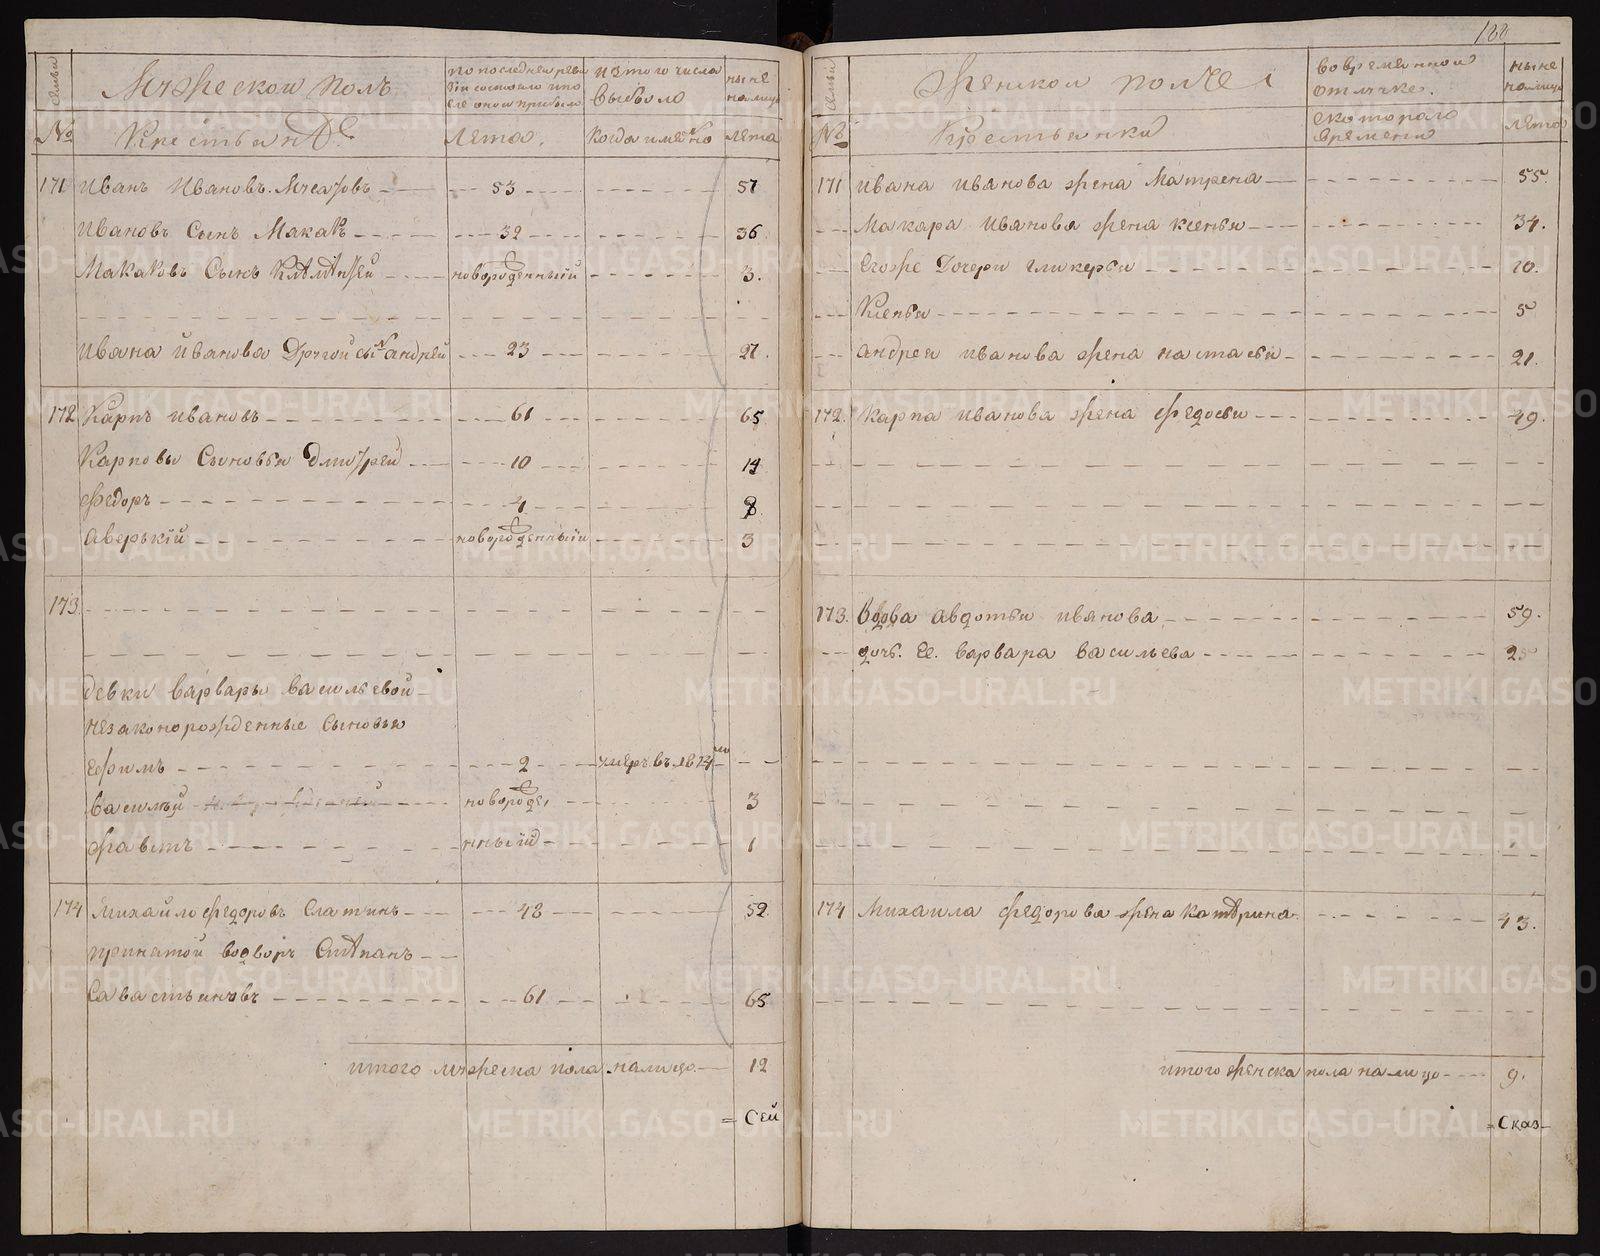 188
семьи
Мужеской полъ
по последней реви
зіи состояло и по
сле оной прибыло
из того числа
выбыло
ныне
налицо
№
Крестьяне
Лета.
когда именно
лета
171 Иванъ Ивановъ 53 57
Ивановъ Сынъ Макаръ 32 36
Макаровъ Сынъ новороденный 3.
Ивана Иванова Другой сынъ андрей 23 27.
172 Карпъ Ивановъ 61 65
Карповы Сыновья Дмитрей 10 14
Федоръ 4 8
Аверькій новороденный 3
173.
девки варвары васильевой
незаконорожденные Сыновья
Ефимъ 2 умеръ въ 1813мъ
василий новороде
Фавстъ нный 1
3
174 Михайло Федоровъ Слатинъ 48 52
принятой во дворъ Степанъ
Савастьяновъ 61 65
итого мужеска пола налицо 12
= Сей
семьи
Женской полъ
во временной
отлучке.
ныне
налицо
№
Крестьянки
с котораго
времени
лета
171 ивана иванова жена Матрена 55.
Макара иванова жена ксенья 34.
Егоже Дочери гликерья 10.
Ксенья 5
андрея иванова жена настасья 21.
172. Карпа иванова жена федосья 49.
173. Вдова авдотья иванова 59.
дочь Ее. варвара васильева 25
174 Михаила федорова жена катерина 43.
итого женска пола налицо 9.
= Сказ
METRIKI.GASO-URAL.RU